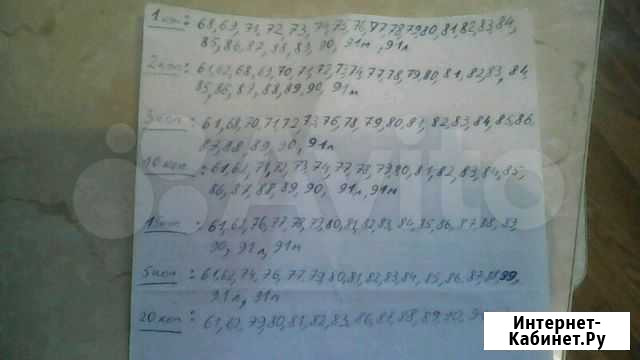 1 коп: 68,69,71,72,73,74,75,76,77,78,79,80,81,82,83,84,
85,86,87,88,89,90,91м,91л
2 коп: 61,62,68,69,70,71,72,73,74,77,78,79,80,81,82,83,84,
85,86,87,88,89,90,91м
3 коп: 61,68,70,71,72,73,76,78,79,80,81,82,83,84,85,86
87,88,89,90,91л
10 коп: 61,62,71,72,73,74,77,78,79,80,81,82,83,84,85,
86,87,88,89,90,91л,91м
15 коп: 61,62,76,77,78,79,80,81,82,83,84,85,86,87,88,89
90,91л,91м
5 коп: 61,62,74,76,77,79,80,81,82,83,84,85,86,87,88,
91л,91м
20 коп: 61,62,79,80,81,82,83,86,87,88,89,90,
Avito
Интернет-
Кабинет.Ру